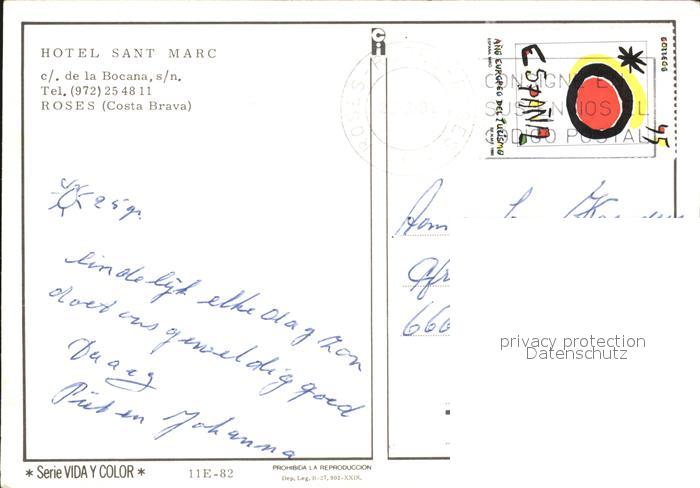 HOTEL SANT MARC
c/. de la Bocana, s/n.
Tel. (972) 25 48 11
ROSES (Costa Brava)
25 gr.
eindelijk elke dag zon
doet ons geweldig goed
Daaag
Piet en Johanna
* Serie VIDA Y COLOR *
11E-82
PROHIBIDA LA REPRODUCCION
Dep. Leg. B-27, 902-XXIX.
ROSES
CONSIGNE EN
SUS ENVIOS EL
CODIGO POSTAL
AÑO EUROPEO DEL TURISMO
ESPAÑA
CORREOS
45
666
privacy protection
Datenschutz